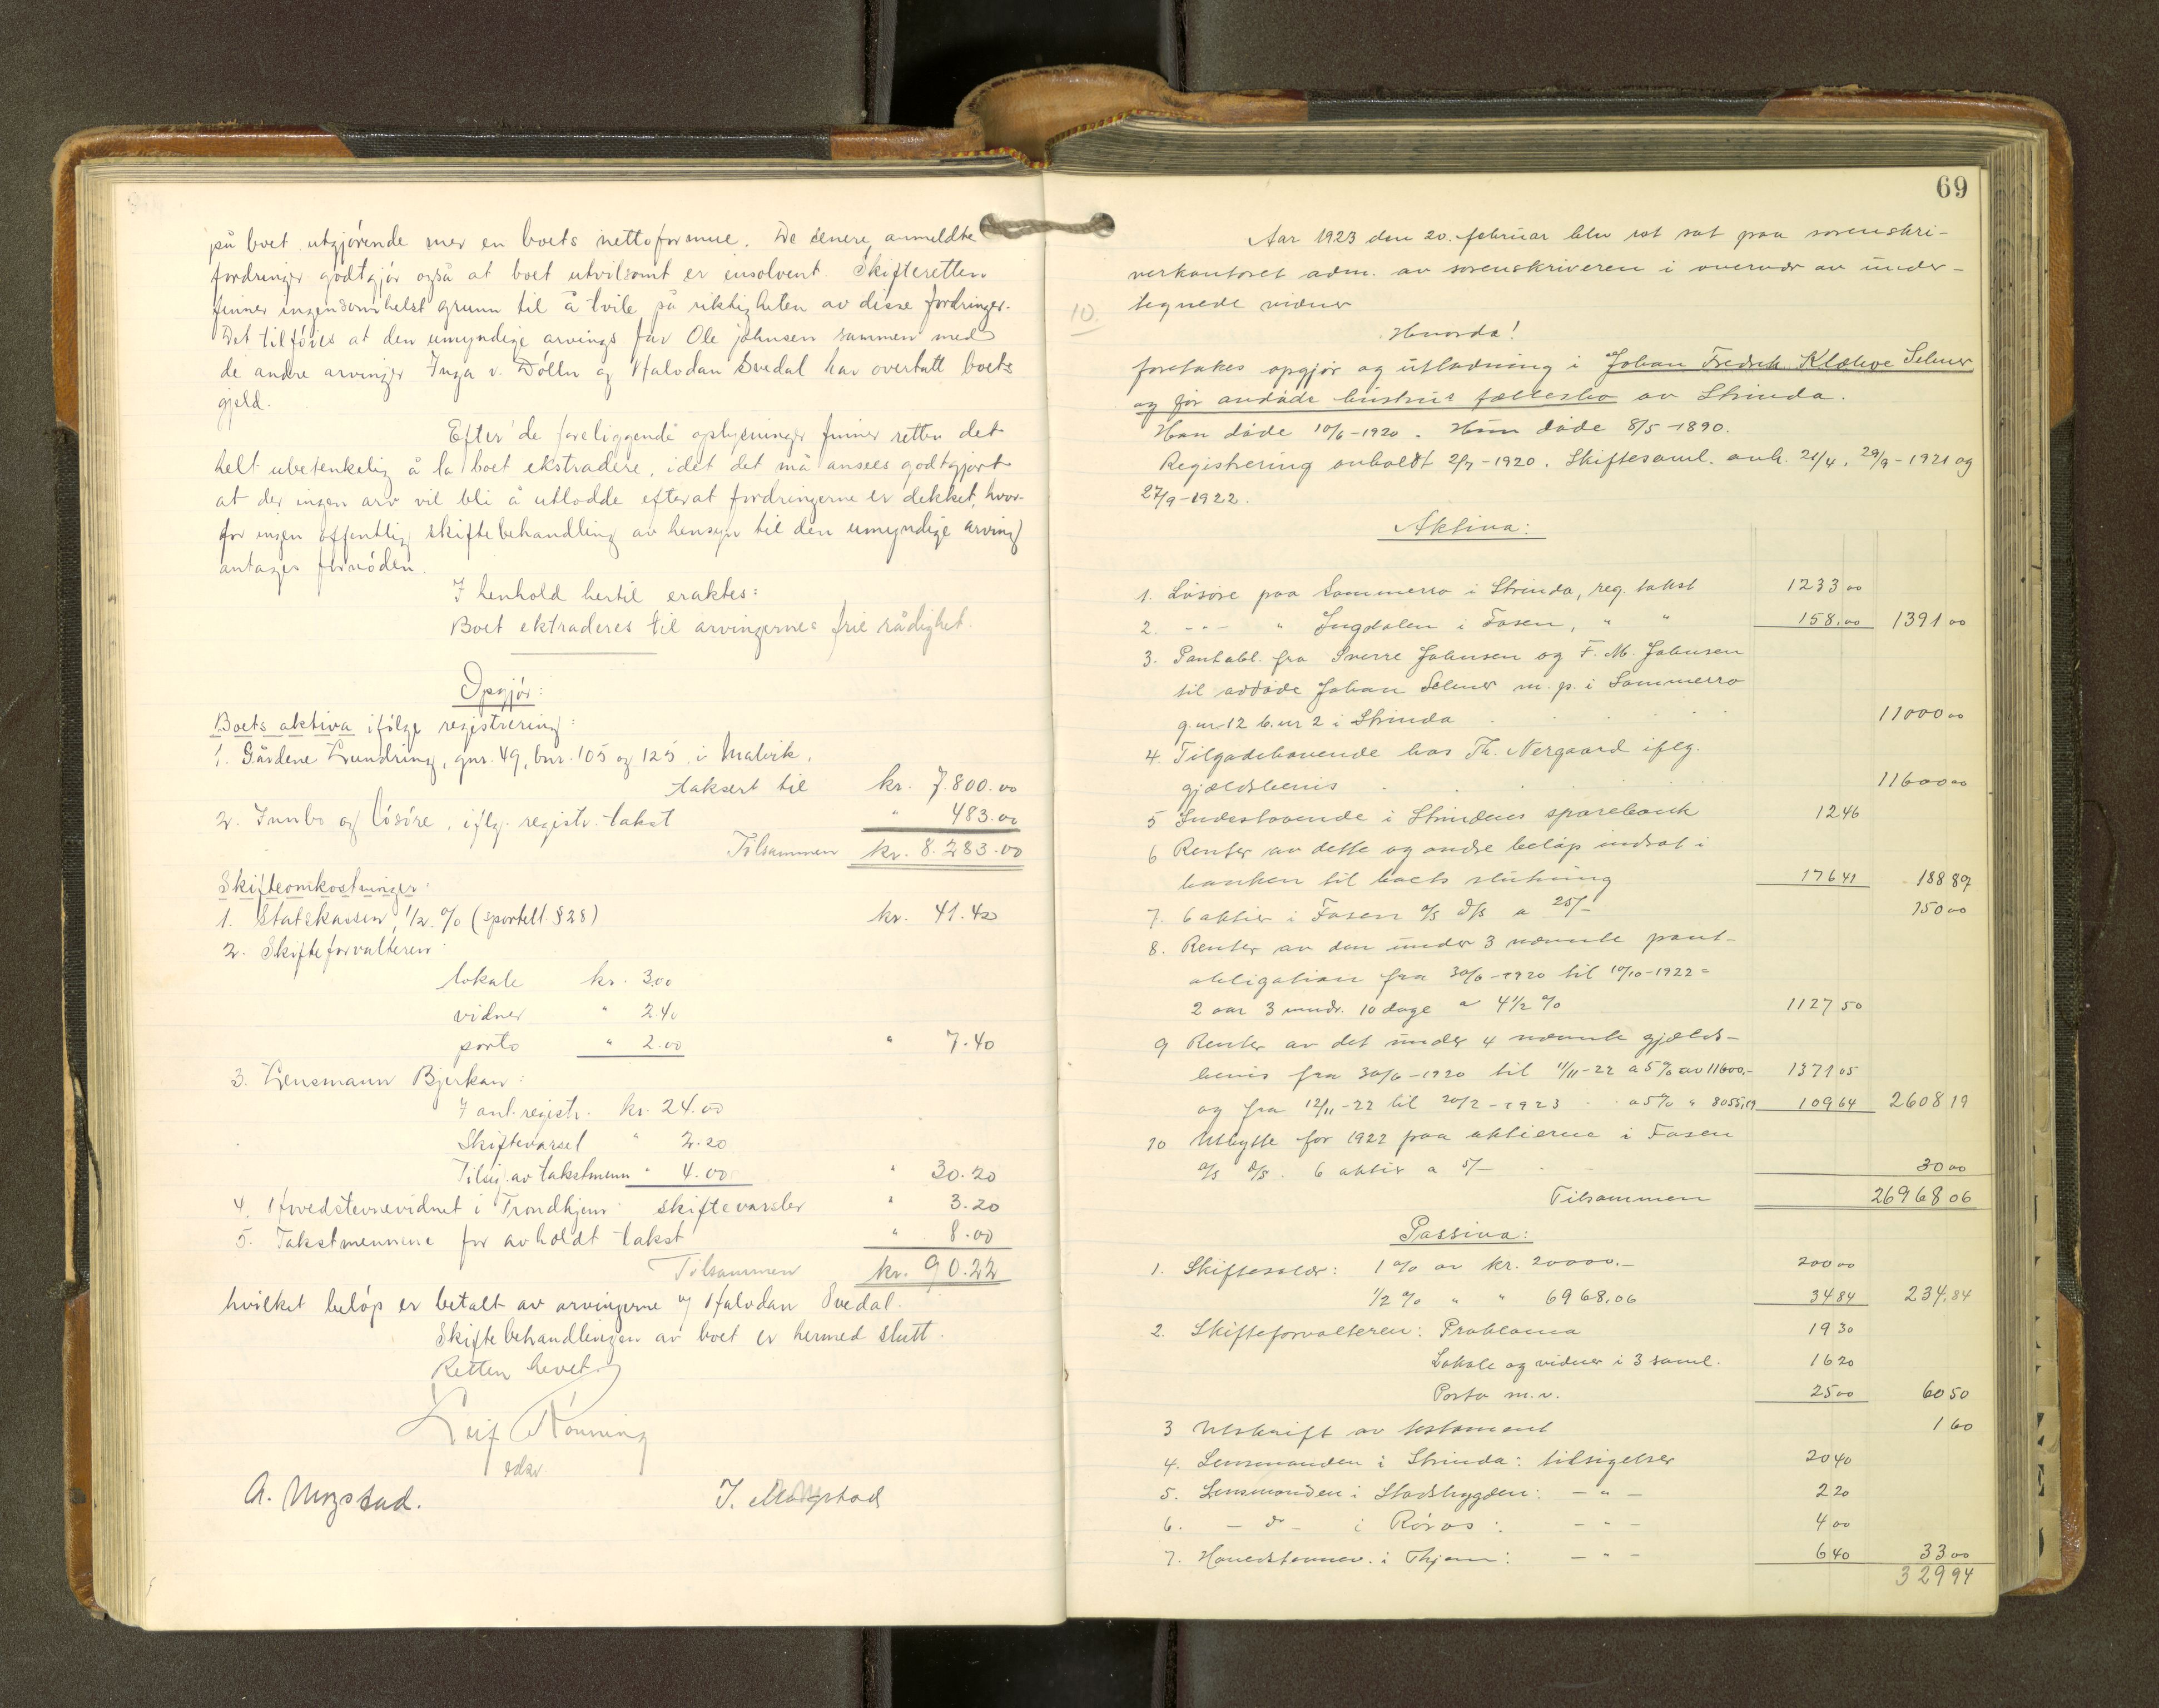 på boet utgjørende mer en boets nettoformue. De senere anmeldte
fordringer godtgjør også at boet utvilsomt er insolvent. Skifteretten
finner ingensomhelst grunn til å tvile på riktigheten av disse fordringer.
Det tilføies at den umyndige arvings far Ole Johnsen sammen med
de andre arvinger Inga v. Dølln og Halvdan Svedal har overtatt boets
gjeld.
Efter de foreliggende oplysninger finner retten det
helt ubetenkelig å la boet ekstradere, idet det må ansees godtgjort
at der ingen arv vil bli å utlodde efterat fordringerne er dekket, hvor-
for ingen offentlig skiftebehandling av hensyn til den umyndige arving
antages fornøden.
I henhold hertil eraktes:
Boet ektraderes til arvingernes frie rådighet.
Opgjør:
Boets aktiva ifølge registrering:
1. Gårdene Lundring, gnr. 49, bnr. 105 og 125, i Malvik,
taksert til kr. 7.800.00
2. Innbo og løsøre, iflg. registr. takst " 483.00
Tilsammen kr. 8.283.00
Skifteomkostninger:
1. Statskassen 1/2 % (sportell. § 28) kr. 41.42
2. Skifteforvalteren
lokale kr. 3.00
vidner " 2.40
porto " 2.00 " 7.40
3. Lensmann Bjerkan:
I anl. registr. kr. 24.00
Skiftevarsel " 2.20
Tilsig. av takstmenn " 4.00 " 30.20
4. Hovedstevnevidnet i Trondhjem skiftevarsler " 3.20
5. Takstmennene for avholdt takst " 8.00
Tilsammen kr. 90.22
hvilket beløp er betalt av arvingerne v/ Halvdan Svedal.
Skiftebehandlingen av boet er hermed slutt.
Retten hevet
Leif Rønning
edsv.
A. Mogstad. J. Mogstad
69
Aar 1923 den 20. februar blev ret sat paa sorenskri-
verkontoret adm. av sorenskriveren i overvær av under-
10. tegnede vidner
Hvorda!
foretakes opgjør og utlodning i Johan Fredrik Klæboe Selmer
og før avdøde hustrus fællesbo av Strinda.
Han døde 10/6-1920. Hun døde 8/5-1890.
Registrering avholdt 2/7-1920. Skiftesaml. avh. 21/4, 29/9-1921 og
27/9-1922.
Aktiva:
1. Løsøre paa Sommerro i Strinda, reg. takst 1233 00
2. -"- " Ingdalen i Fosen, " " 158.00 1391 00
3. Pantobl. fra Sverre Johnsen og F. M. Johnsen
til avdøde Johan Selmer m. p. i Sommerro
g.nr 12 b.nr 2 i Strinda 11000 00
4. Tilgodehavende hos Th. Nergaard iflg.
gjældsbevis 11600 00
5 Indestaaende i Strindens sparebank 12 46
6 Renter av dette og andre beløp indsat i
banken til boets slutning 176 41 188 87
7. 6 aktier i Fosen a/s d/s a 25/- 150 00
8. Renter av den under 3 nævnte pant-
obligation fra 30/6-1920 til 10/10-1922 =
2 aar 3 mndr. 10 dage a 4 1/2 % 1127 50
9 Renter av det under 4 nævnte gjælds-
bevis fra 30/6-1920 til 11/11-22 a 5% av 11600.- 1371 05
og fra 12/11-22 til 20/2-1923 a 5% " 8055,19 109 64 2608 19
10 Utbytte for 1922 paa aktierne i Fosen
a/s d/s. 6 aktier a 5/- 30 00
Tilsammen 26968 06
Passiva:
1. Skiftesalær: 1% av kr. 20000.- 200 00
1/2 % " " 6968,06 34 84 234,84
2. Skifteforvalteren: Proklama 19 30
Lokale og vidner i 3 saml. 16 20
Porto m.v. 25 00 60 50
3 Utskrift av testament 1 60
4. Lensmanden i Strinda: tilsigelser 20 40
5. Lensmanden i Stadsbygden: - " - 2 20
6. - do - i Røros: - " - 4 00
7. Hovedstevnev. i Thjem: - " - 6 40 33 00
329 94